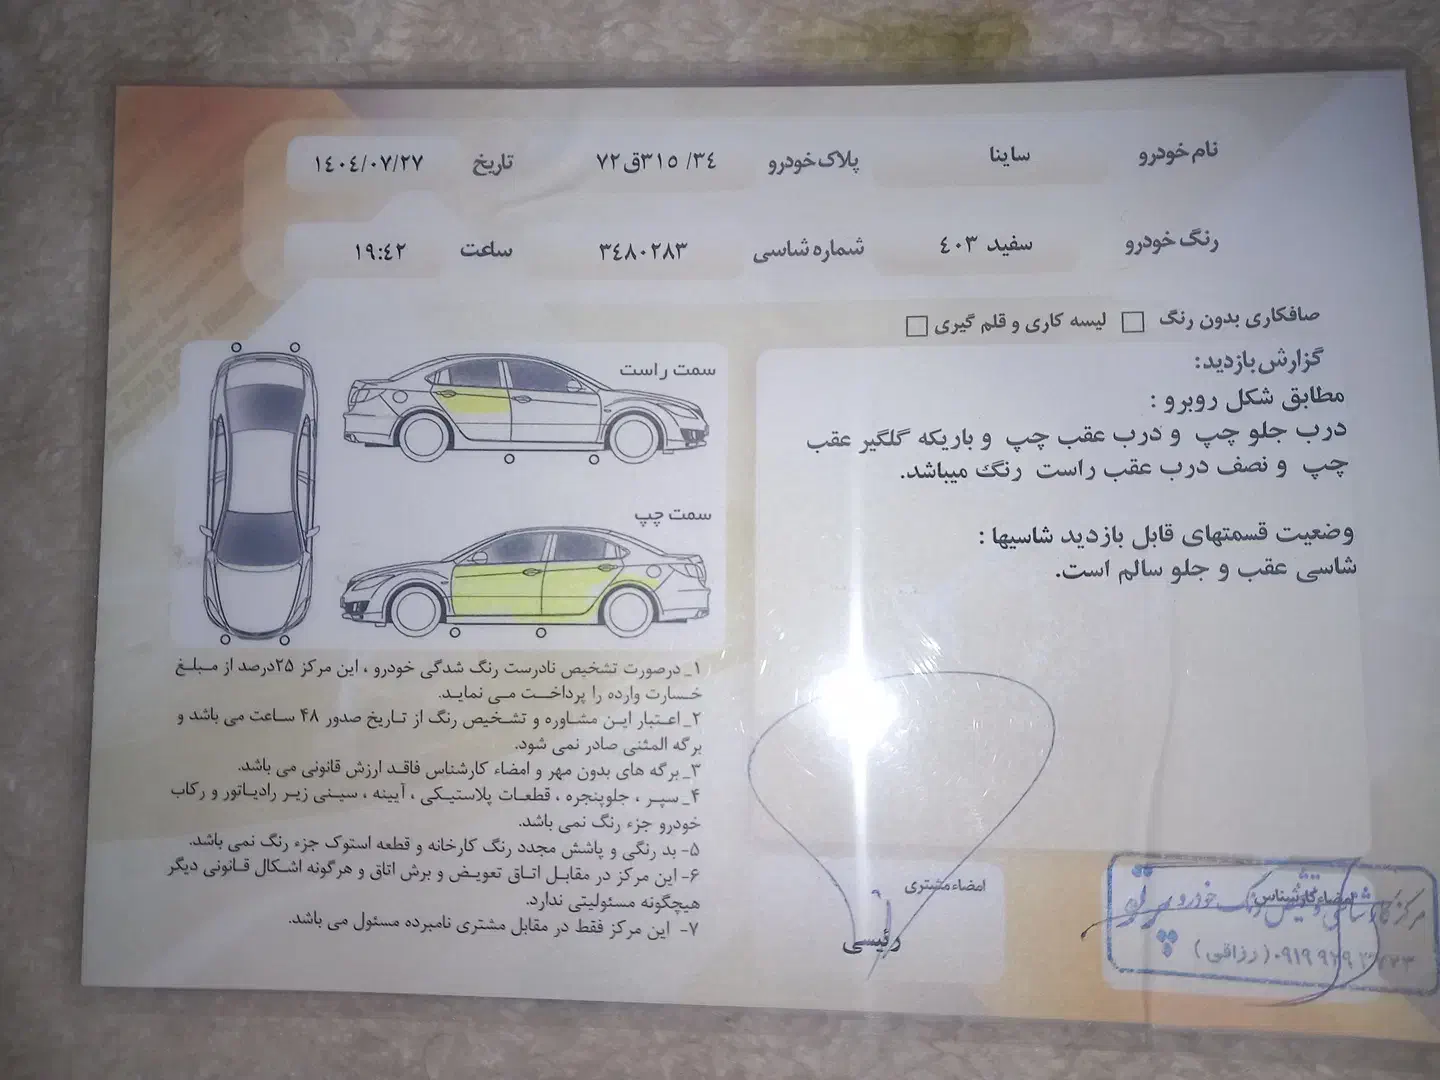 نام خودرو ساینا پلاک خودرو ۳۴/ ۳۱۵ق۷۲ تاریخ ۱۴۰۴/۰۷/۲۷
رنگ خودرو سفید ۴۰۳ شماره شاسی ۳۴۸۰۲۸۳ ساعت ۱۹:۴۲
صافکاری بدون رنگ لیسه کاری و قلم گیری
گزارش بازدید:
مطابق شکل روبرو :
درب جلو چپ و درب عقب چپ و باریکه گلگیر عقب
چپ و نصف درب عقب راست رنگ میباشد.
وضعیت قسمتهای قابل بازدید شاسیها :
شاسی عقب و جلو سالم است.
سمت راست
سمت چپ
۱_ درصورت تشخیص نادرست رنگ شدگی خودرو ، این مرکز ۲۵درصد از مبلغ
خسارت وارده را پرداخت می نماید.
۲_ اعتبار این مشاوره و تشخیص رنگ از تاریخ صدور ۴۸ ساعت می باشد و
برگه المثنی صادر نمی شود.
۳_ برگه های بدون مهر و امضاء کارشناس فاقد ارزش قانونی می باشد.
۴_ سپر ، جلوپنجره ، قطعات پلاستیکی ، آیینه ، سینی زیر رادیاتور و رکاب
خودرو جزء رنگ نمی باشد.
۵- بد رنگی و پاشش مجدد رنگ کارخانه و قطعه استوک جزء رنگ نمی باشد.
۶- این مرکز در مقابل اتاق تعویض و برش اتاق و هرگونه اشکال قانونی دیگر
هیچگونه مسئولیتی ندارد.
۷- این مرکز فقط در مقابل مشتری نامبرده مسئول می باشد.
امضاء مشتری
رئیسی
امضاء کارشناس
مرکز خودرو پرتو
(رزاقی)